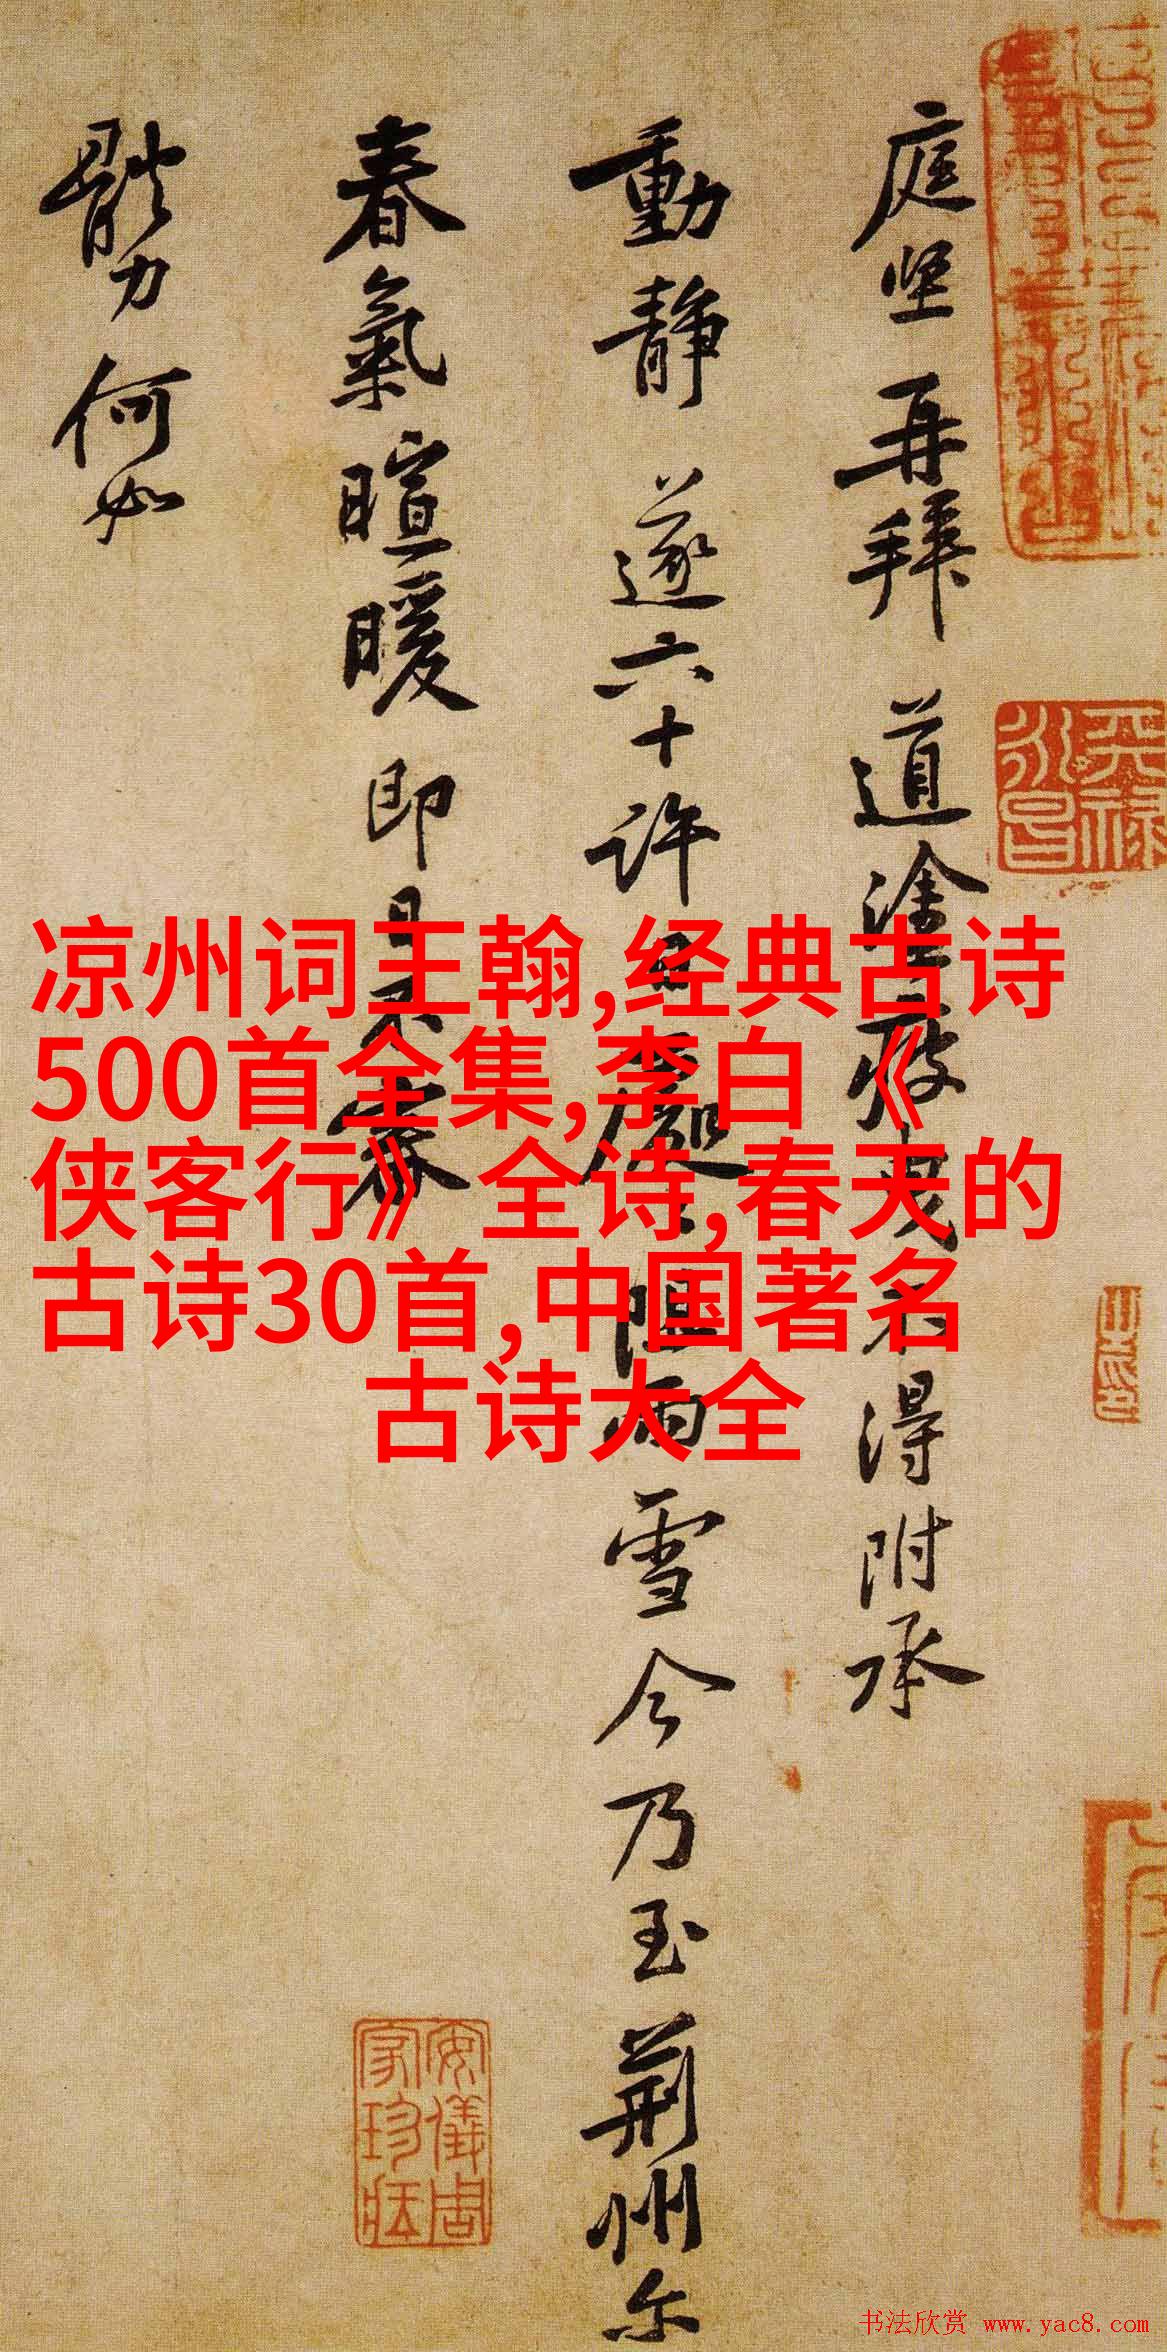 庭坚再拜 道塗疲曳不得附承
動静 遂六十許日 阻雨雪今乃至荆州尔
春氣暄暖即日不審
體力何如
凉州词王翰,经典古诗
500首全集,李白《
侠客行》全诗,春天的
古诗30首,中国著名
古诗大全
天禄永昌
安儀周家珍藏
书法欣赏 www.yac8.com